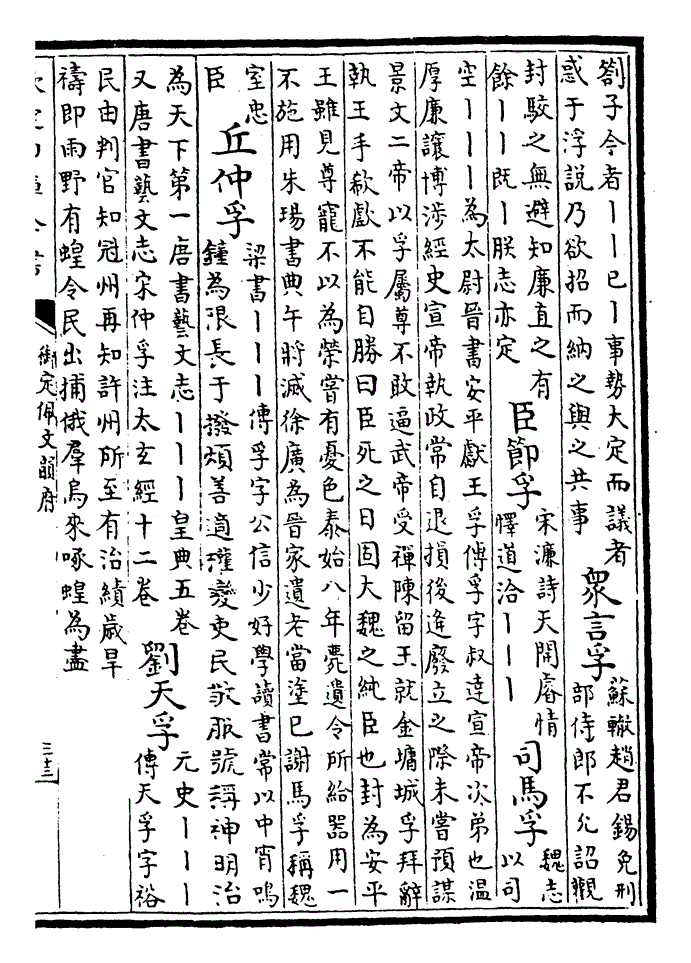 劄子今者丨丨已丨事勢大定而議者
惑于浮說乃欲招而納之與之共事
眾言孚
蘇轍趙君錫免刑
部侍郎不允詔觀
封駮之無避知廉直之有
餘丨丨既丨朕志亦定
臣節孚
宋濂詩天開睿情
懌道洽丨丨丨
司馬孚
魏志
以司
空丨丨丨為太尉晉書安平獻王孚傳孚字叔達宣帝次弟也温
厚廉讓博涉經史宣帝執政常自退損後逢廢立之際未嘗預謀
景文二帝以孚屬尊不敢逼武帝受禪陳留王就金墉城孚拜辭
執王手欷歔不能自勝曰臣死之日固大魏之純臣也封為安平
王雖見尊寵不以為榮嘗有憂色泰始八年薨遺令所給器用一
不施用朱瑒書典午將滅徐廣為晉家遺老當塗已謝馬孚稱魏
室忠
臣
丘仲孚
梁書丨丨丨傳孚字公信少好學讀書常以中宵鳴
鐘為限長于撥煩善適權變吏民敬服號稱神明治
為天下第一唐書藝文志丨丨丨皇典五卷
又唐書藝文志宋仲孚注太玄經十二卷
劉天孚
元史丨丨丨
傳天孚字裕
民由判官知冠州再知許州所至有治績歲旱
禱即雨野有蝗令民出捕俄羣烏來啄蝗為盡
御定佩文韻府
三十三